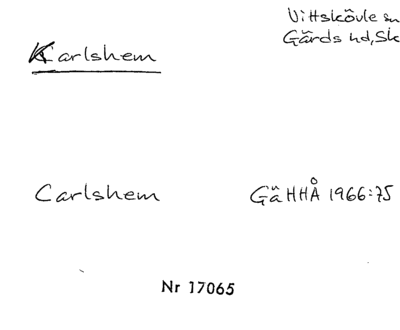 Vittskövle sn
Gärds hd, Sk
Karlshem
Carlshem GäHHÅ 1966:75
Nr 17065